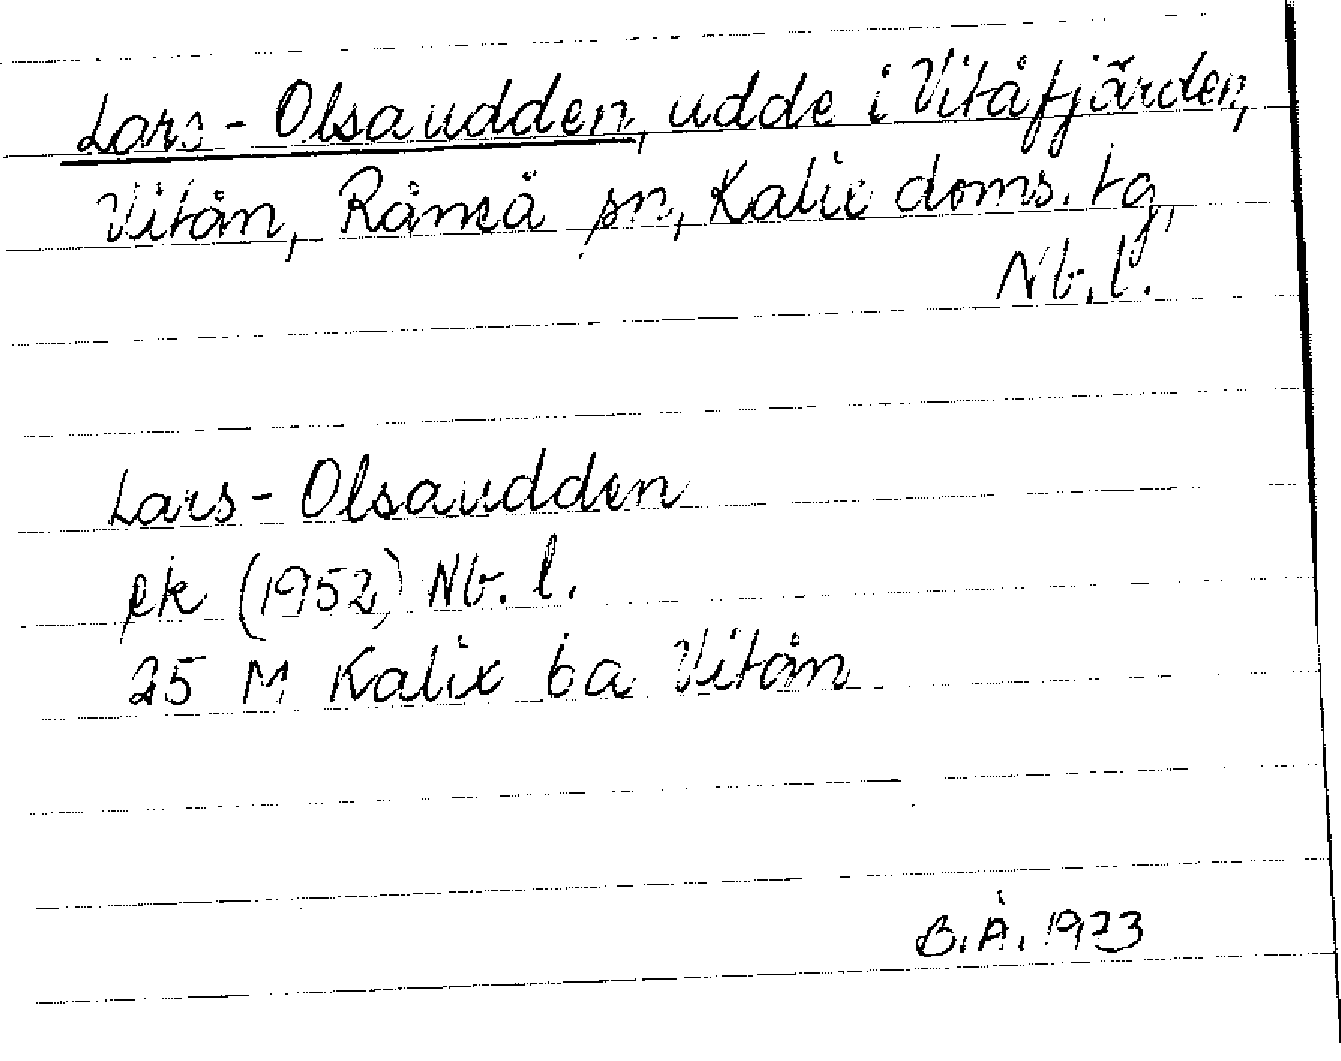 Lars-Olsaudden, udde i Vitåfjärden,
Vitån, Råneå sn, Kalix doms. tg,
Nb. l.
Lars-Olsaudden
ek (1952) Nb. l.
25 M Kalix 6a Vitån
B.Å. 1973